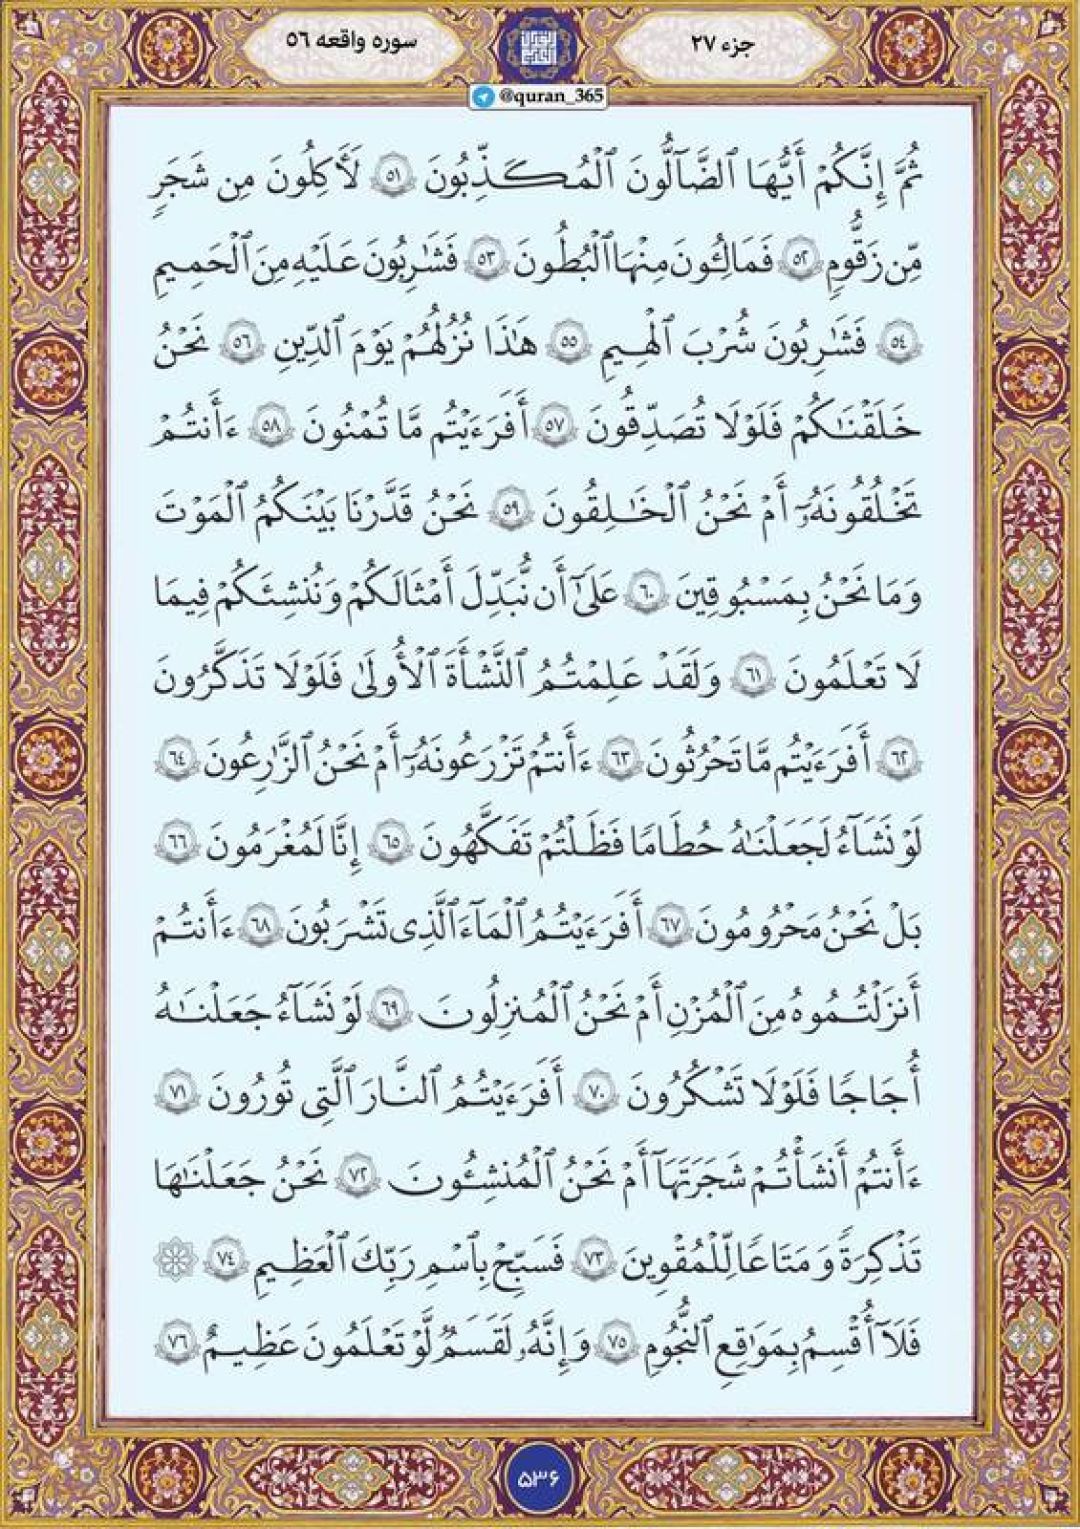 جزء ۲۷
سوره واقعه ۵۶
@quran_365
ثُمَّ إِنَّكُمْ أَيُّهَا ٱلضَّآلُّونَ ٱلْمُكَذِّبُونَ ٥١ لَـَٔاكِلُونَ مِن شَجَرٍ
مِّن زَقُّومٍ ٥٢ فَمَالِـُٔونَ مِنْهَا ٱلْبُطُونَ ٥٣ فَشَـٰرِبُونَ عَلَيْهِ مِنَ ٱلْحَمِيمِ
٥٤ فَشَـٰرِبُونَ شُرْبَ ٱلْهِيمِ ٥٥ هَـٰذَا نُزُلُهُمْ يَوْمَ ٱلدِّينِ ٥٦ نَحْنُ
خَلَقْنَـٰكُمْ فَلَوْلَا تُصَدِّقُونَ ٥٧ أَفَرَءَيْتُم مَّا تُمْنُونَ ٥٨ ءَأَنتُمْ
تَخْلُقُونَهُۥٓ أَمْ نَحْنُ ٱلْخَـٰلِقُونَ ٥٩ نَحْنُ قَدَّرْنَا بَيْنَكُمُ ٱلْمَوْتَ
وَمَا نَحْنُ بِمَسْبُوقِينَ ٦٠ عَلَىٰٓ أَن نُّبَدِّلَ أَمْثَـٰلَكُمْ وَنُنشِئَكُمْ فِيمَا
لَا تَعْلَمُونَ ٦١ وَلَقَدْ عَلِمْتُمُ ٱلنَّشْأَةَ ٱلْأُولَىٰ فَلَوْلَا تَذَكَّرُونَ
٦٢ أَفَرَءَيْتُم مَّا تَحْرُثُونَ ٦٣ ءَأَنتُمْ تَزْرَعُونَهُۥٓ أَمْ نَحْنُ ٱلزَّٰرِعُونَ ٦٤
لَوْ نَشَآءُ لَجَعَلْنَـٰهُ حُطَـٰمًا فَظَلْتُمْ تَفَكَّهُونَ ٦٥ إِنَّا لَمُغْرَمُونَ ٦٦
بَلْ نَحْنُ مَحْرُومُونَ ٦٧ أَفَرَءَيْتُمُ ٱلْمَآءَ ٱلَّذِى تَشْرَبُونَ ٦٨ ءَأَنتُمْ
أَنزَلْتُمُوهُ مِنَ ٱلْمُزْنِ أَمْ نَحْنُ ٱلْمُنزِلُونَ ٦٩ لَوْ نَشَآءُ جَعَلْنَـٰهُ
أُجَاجًا فَلَوْلَا تَشْكُرُونَ ٧٠ أَفَرَءَيْتُمُ ٱلنَّارَ ٱلَّتِى تُورُونَ ٧١
ءَأَنتُمْ أَنشَأْتُمْ شَجَرَتَهَآ أَمْ نَحْنُ ٱلْمُنشِـُٔونَ ٧٢ نَحْنُ جَعَلْنَـٰهَا
تَذْكِرَةً وَمَتَـٰعًا لِّلْمُقْوِينَ ٧٣ فَسَبِّحْ بِٱسْمِ رَبِّكَ ٱلْعَظِيمِ ٧٤ ۞
فَلَآ أُقْسِمُ بِمَوَٰقِعِ ٱلنُّجُومِ ٧٥ وَإِنَّهُۥ لَقَسَمٌ لَّوْ تَعْلَمُونَ عَظِيمٌ ٧٦
۵۳۶